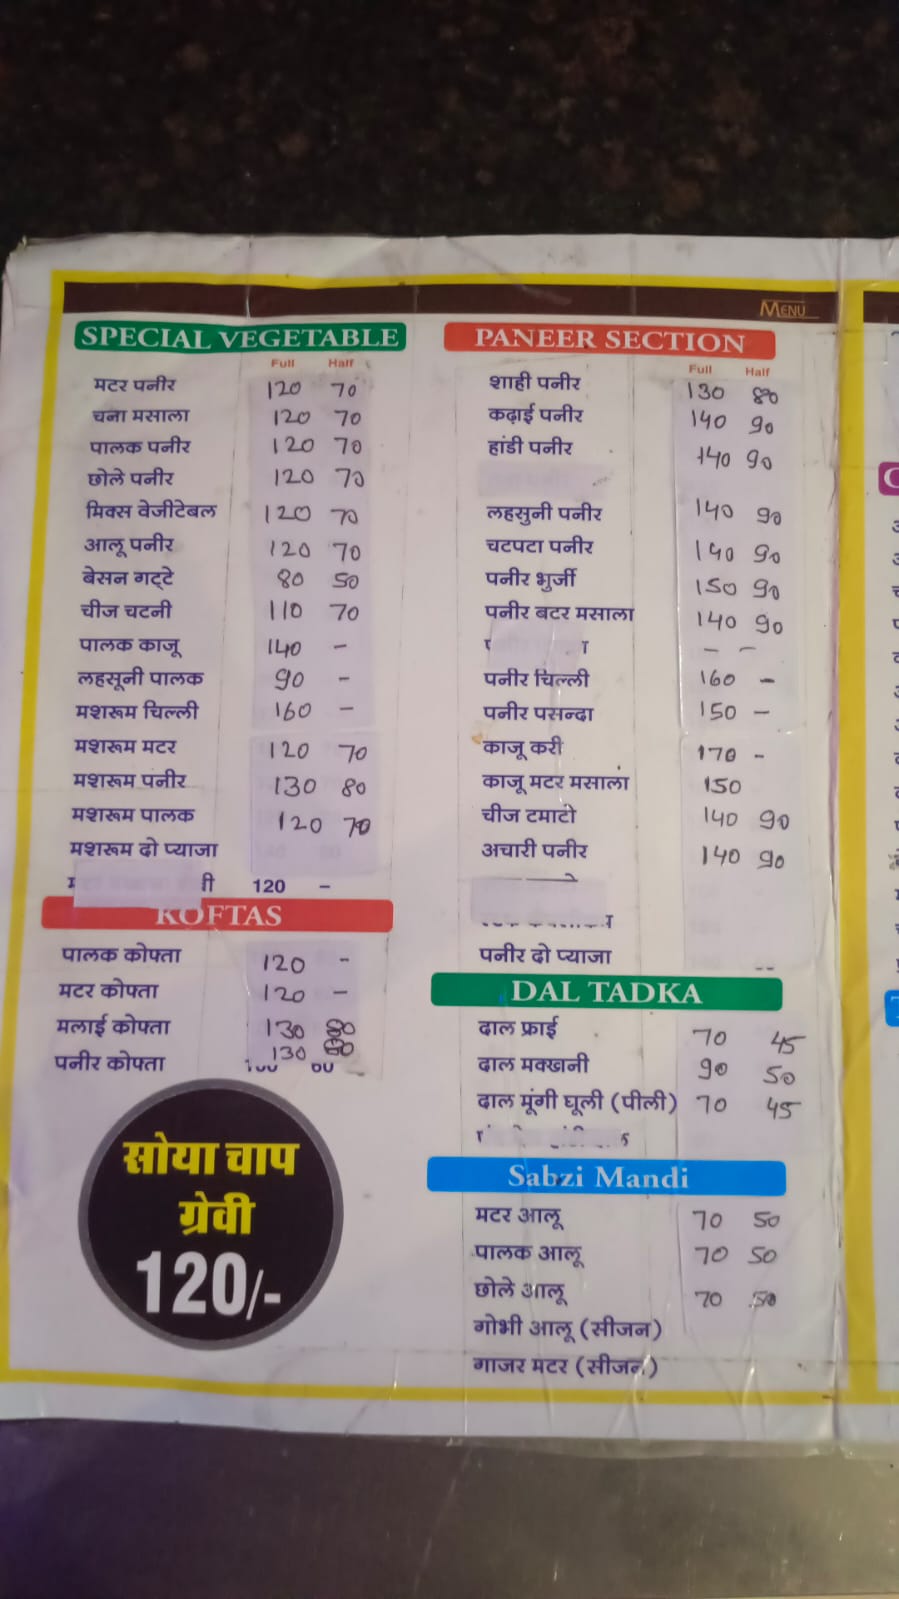 MENU
SPECIAL VEGETABLE
Full Half
मटर पनीर 120 70
चना मसाला 120 70
पालक पनीर 120 70
छोले पनीर 120 70
मिक्स वेजीटेबल 120 70
आलू पनीर 120 70
बेसन गट्टे 80 50
चीज चटनी 110 70
पालक काजू 140 -
लहसूनी पालक 90 -
मशरूम चिल्ली 160 -
मशरूम मटर 120 70
मशरूम पनीर 130 80
मशरूम पालक 120 70
मशरूम दो प्याजा
120 -
KOFTAS
पालक कोफ्ता 120 -
मटर कोफ्ता 120 -
मलाई कोफ्ता 130 80
पनीर कोफ्ता 130
सोया चाप
ग्रेवी
120/-
PANEER SECTION
Full Half
शाही पनीर 130 80
कढ़ाई पनीर 140 90
हांडी पनीर 140 90
लहसुनी पनीर 140 90
चटपटा पनीर 140 90
पनीर भुर्जी 150 90
पनीर बटर मसाला 140 90
- -
पनीर चिल्ली 160 -
पनीर पसन्दा 150 -
काजू करी 170 -
काजू मटर मसाला 150
चीज टमाटो 140 90
अचारी पनीर 140 90
पनीर दो प्याजा
DAL TADKA
दाल फ्राई 70 45
दाल मक्खनी 90 50
दाल मूंगी घूली (पीली) 70 45
Sabzi Mandi
मटर आलू 70 50
पालक आलू 70 50
छोले आलू 70 50
गोभी आलू (सीजन)
गाजर मटर (सीजन)